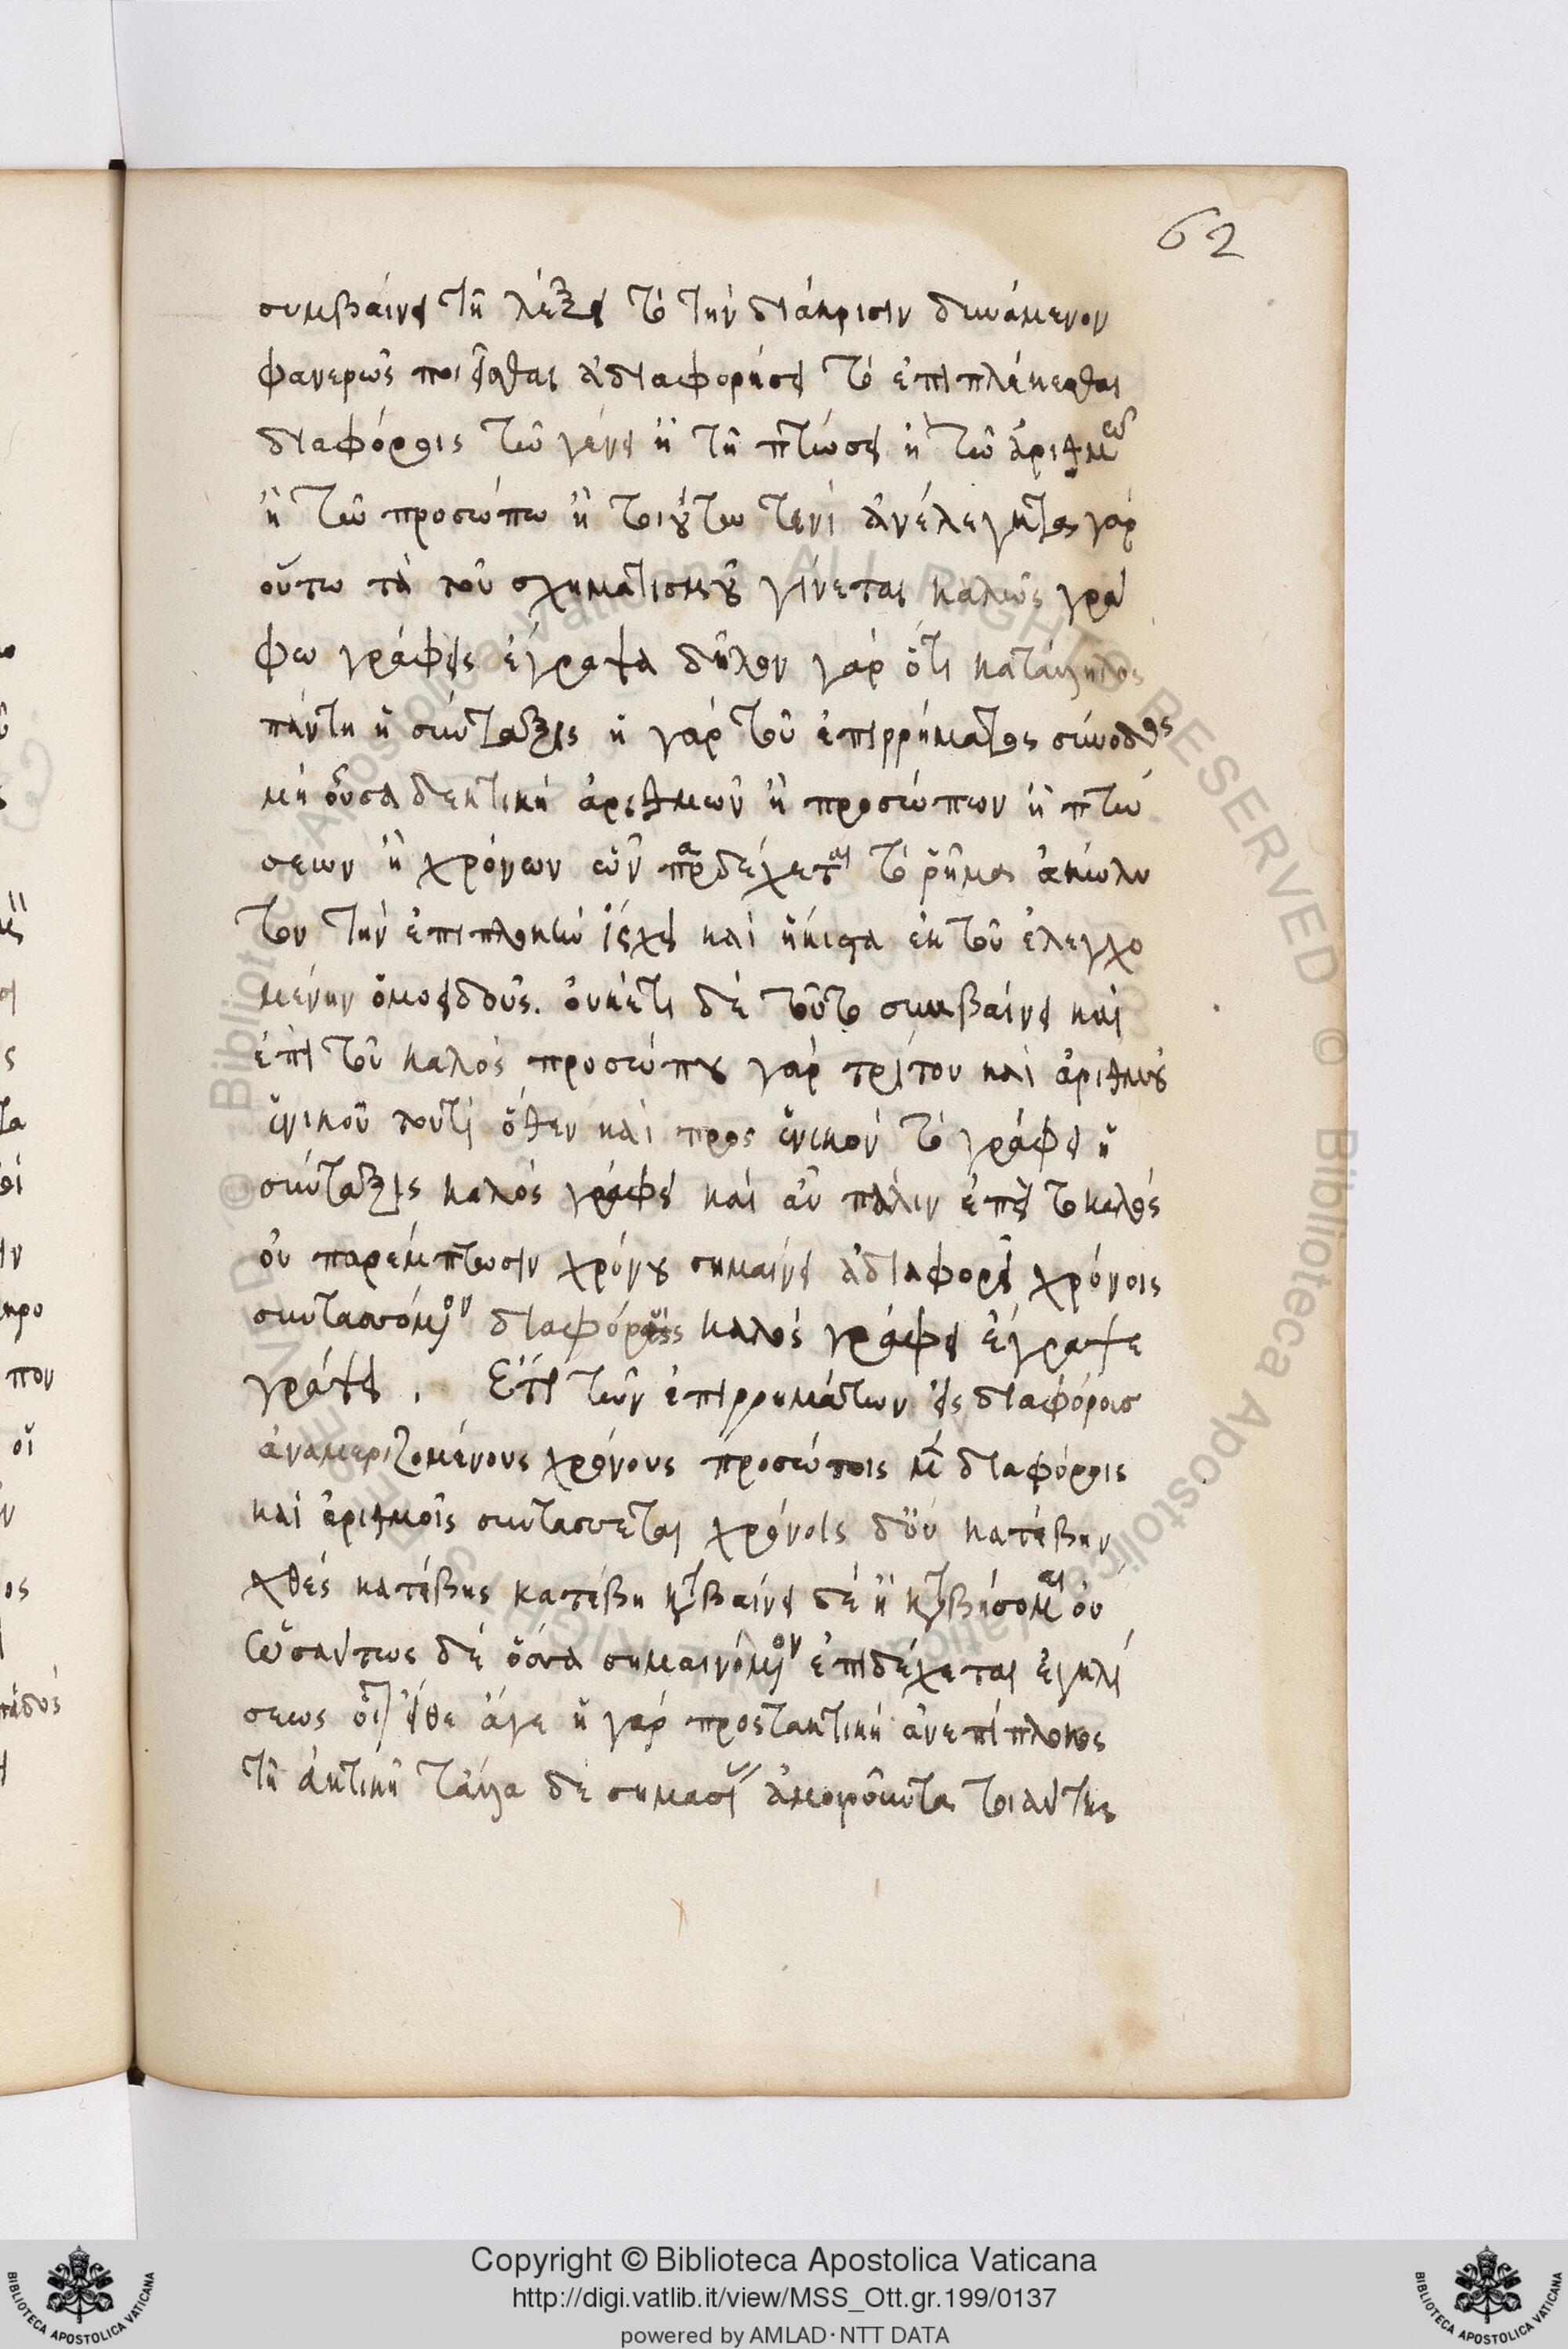 62
συμβαίνει τῆ λέξει τὸ τὴν διάκρισιν δυνάμενον
φανερῶς ποιεῖσθαι ἀδιαφορήσει τὸ ἐπιπλέκεσθαι
διαφόροις τῶ γένει ἢ τῆ πτώσει ἢ τῶ ἀριθμῶ
ἢ τῶ προσώπω ἢ τοιούτω τινὶ ἀνέλεγκτος γὰρ
οὕτω τὰ τοῦ σχηματισμοῦ γίνεται καλῶς γρά
φω γράφεις ἔγραψα δῆλον γὰρ ὅτι κατάλληλος
πάντη ἡ σύνταξις ἡ γὰρ τοῦ ἐπιρρήματος σύνοδος
μὴ οὖσα δεκτικὴ ἀριθμῶν ἢ προσώπων ἢ πτώ
σεων ἢ χρόνων ὧν παραδέχεται τὸ ῥῆμα ἀκώλυ
τον τὴν ἐπιπλοκὴν ἴσχει καὶ ἥκιστα ἐκ τοῦ ἐλεγχο
μένην ὁμοειδοῦς. οὐκέτι δὲ τοῦτο συμβαίνει καὶ
ἐπὶ τοῦ καλὸς προσώπου γὰρ τρίτου καὶ ἀριθμοῦ
ἑνικοῦ τουτὶ ὅθεν καὶ προς ἑνικὸν τὸ γράφει ἡ
σύνταξις καλὸς γράφει καὶ αὖ πάλιν ἐπεὶ το καλὸς
οὐ παρέμπτωσιν χρόνου σημαίνει ἀδιαφορεῖ χρόνοις
συντασσόμενον διαφόροις καλὸς γράφει ἔγραψε
γράψει. Ἔτι τῶν ἐπιρρημάτων εἰς διαφόροισ
ἀναμεριζομένους χρόνους προσώποις μὲν διαφόροις
καὶ ἀριθμοῖς συντάσσεται χρόνοις δ' οὐ κατέβην
χθὲς κατέβης κατέβη καταβαίνει δὲ ἢ καταβήσομαι οὐ
ὡσαύτως δὲ ὅσα σημαινόμενον ἐπιδέχεται ἐγκλί
σεως εἴθε ἄγε ἡ γὰρ προστακτικὴ ἀνεπίπλοκος
τῆ εὐκτικῆ τἄλλα δε σημασίας ἀμοιροῦντα τοιαύτης
Copyright © Biblioteca Apostolica Vaticana
http://digi.vatlib.it/view/MSS_Ott.gr.199/0137
powered by AMLAD·NTT DATA